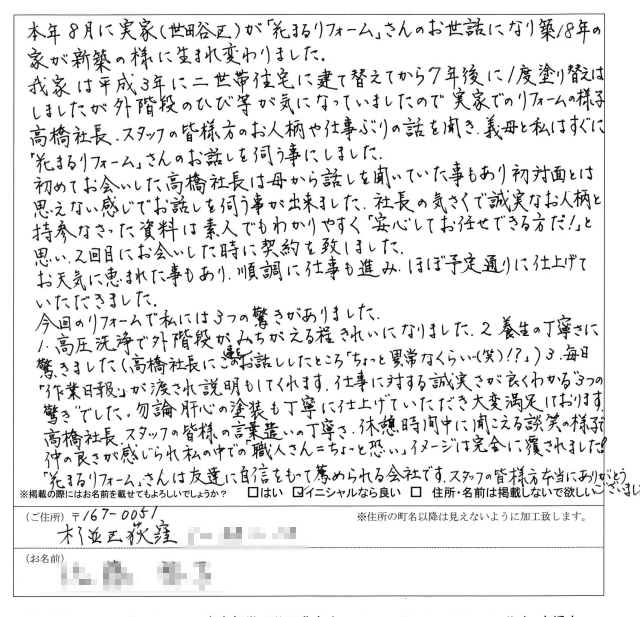 本年8月に実家(世田谷区)が「花まるリフォーム」さんのお世話になり築18年の
家が新築の様に生まれ変わりました。
我家は平成3年に二世帯住宅に建て替えてから7年後に1度塗り替えは
しましたが外階段のひび等が気になっていましたので実家でのリフォームの様子
高橋社長、スタッフの皆様方のお人柄や仕事ぶりの話を聞き、義母と私はすぐに
「花まるリフォーム」さんのお話しを伺う事にしました。
初めてお会いした高橋社長は母から話しを聞いていた事もあり初対面とは
思えない感じでお話しを伺う事が出来ました。社長の気さくで誠実なお人柄と
持参なさった資料は素人でもわかりやすく「安心してお任せできる方だ!」と
思い、2回目にお会いした時に契約を致しました。
お天気に恵まれた事もあり、順調に仕事も進み、ほぼ予定通りに仕上げて
いただきました。
今回のリフォームで私には3つの驚きがありました。
1.高圧洗浄で外階段がみちがえる程きれいになりました。2.養生の丁寧さに
驚きました(高橋社長にこのお話ししたところ「ちょっと異常なくらい(笑)!?」)3.毎日
「作業日報」が渡され説明もしてくれます。仕事に対する誠実さが良くわかる"3つの
驚き"でした。勿論、肝心の塗装も丁寧に仕上げていただき大変満足しております。
高橋社長、スタッフの皆様の言葉遣いの丁寧さ、休憩時間中に聞こえる談笑の様子で
仲の良さが感じられ私の中での職人さん=ちょっと恐い、イメージは完全に覆されました!
「花まるリフォーム」さんは友達に自信をもって薦められる会社です。スタッフの皆様方本当にありがとう
ございました
※掲載の際にはお名前を載せてもよろしいでしょうか? □はい ☑イニシャルなら良い □ 住所・名前は掲載しないで欲しい
(ご住所)〒167-0051 ※住所の町名以降は見えないように加工致します。
杉並区荻窪
(お名前)